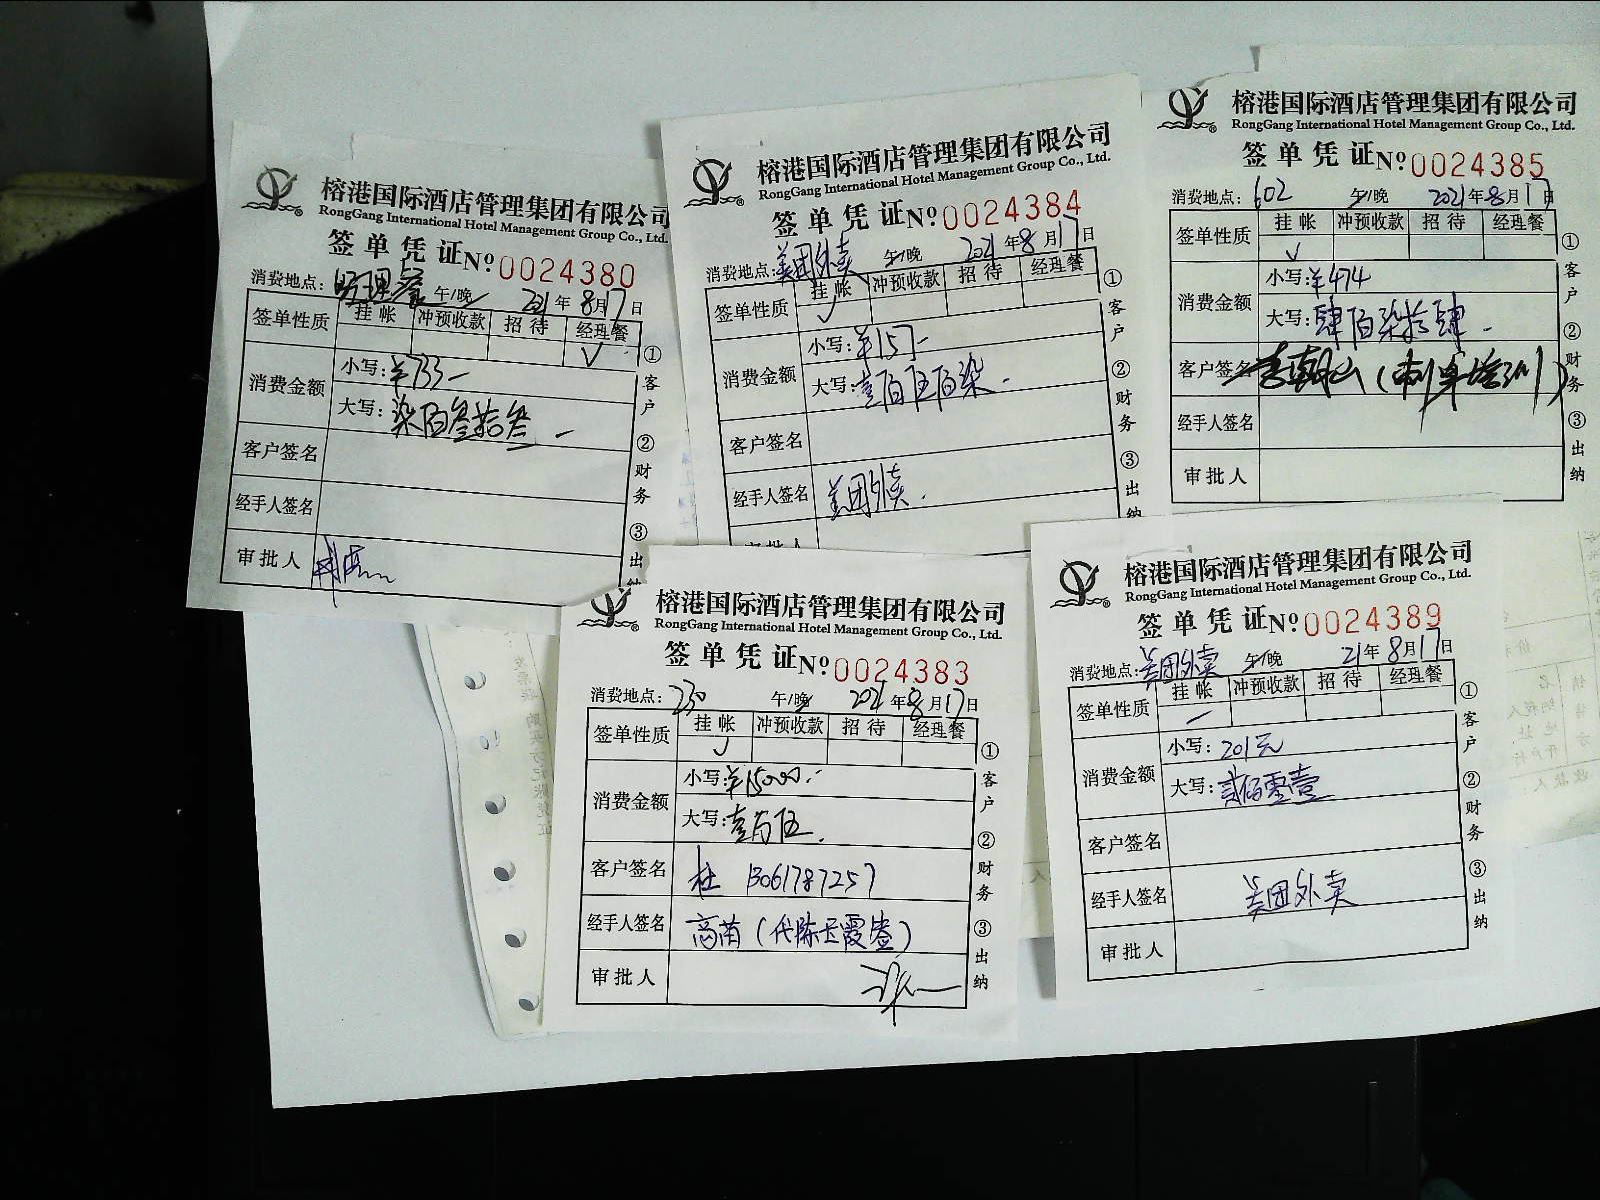 榕港国际酒店管理集团有限公司
RongGang International Hotel Management Group Co., Ltd.
签单凭证 Nº 0024380
消费地点: 经理餐 午/晚 2021年8月17日
签单性质 挂帐 冲预收款 招待 经理餐
√
消费金额 小写: ¥733—
大写: 柒佰叁拾叁
客户签名
经手人签名
审批人
①客户 ②财务 ③出纳
榕港国际酒店管理集团有限公司
RongGang International Hotel Management Group Co., Ltd.
签单凭证 Nº 0024384
消费地点: 美团外卖 午/晚 2021年8月17日
签单性质 挂帐 冲预收款 招待 经理餐
√
消费金额 小写: ¥157—
大写: 壹佰伍佰柒
客户签名
经手人签名 美团外卖
审批人
①客户 ②财务 ③出纳
榕港国际酒店管理集团有限公司
RongGang International Hotel Management Group Co., Ltd.
签单凭证 Nº 0024385
消费地点: 602 午/晚 2021年8月17日
签单性质 挂帐 冲预收款 招待 经理餐
√
消费金额 小写: ¥474
大写: 肆佰柒拾肆
客户签名
经手人签名
审批人
①客户 ②财务 ③出纳
榕港国际酒店管理集团有限公司
RongGang International Hotel Management Group Co., Ltd.
签单凭证 Nº 0024383
消费地点: 230 午/晚 2021年8月17日
签单性质 挂帐 冲预收款 招待 经理餐
√
消费金额 小写: ¥15000
大写: 壹万伍
客户签名 杜 13061787257
经手人签名 高苗(代陈玉霞签)
审批人
①客户 ②财务 ③出纳
榕港国际酒店管理集团有限公司
RongGang International Hotel Management Group Co., Ltd.
签单凭证 Nº 0024389
消费地点: 美团外卖 午/晚 21年8月17日
签单性质 挂帐 冲预收款 招待 经理餐
消费金额 小写: 201元
大写: 贰佰零壹
客户签名
经手人签名 美团外卖
审批人
①客户 ②财务 ③出纳